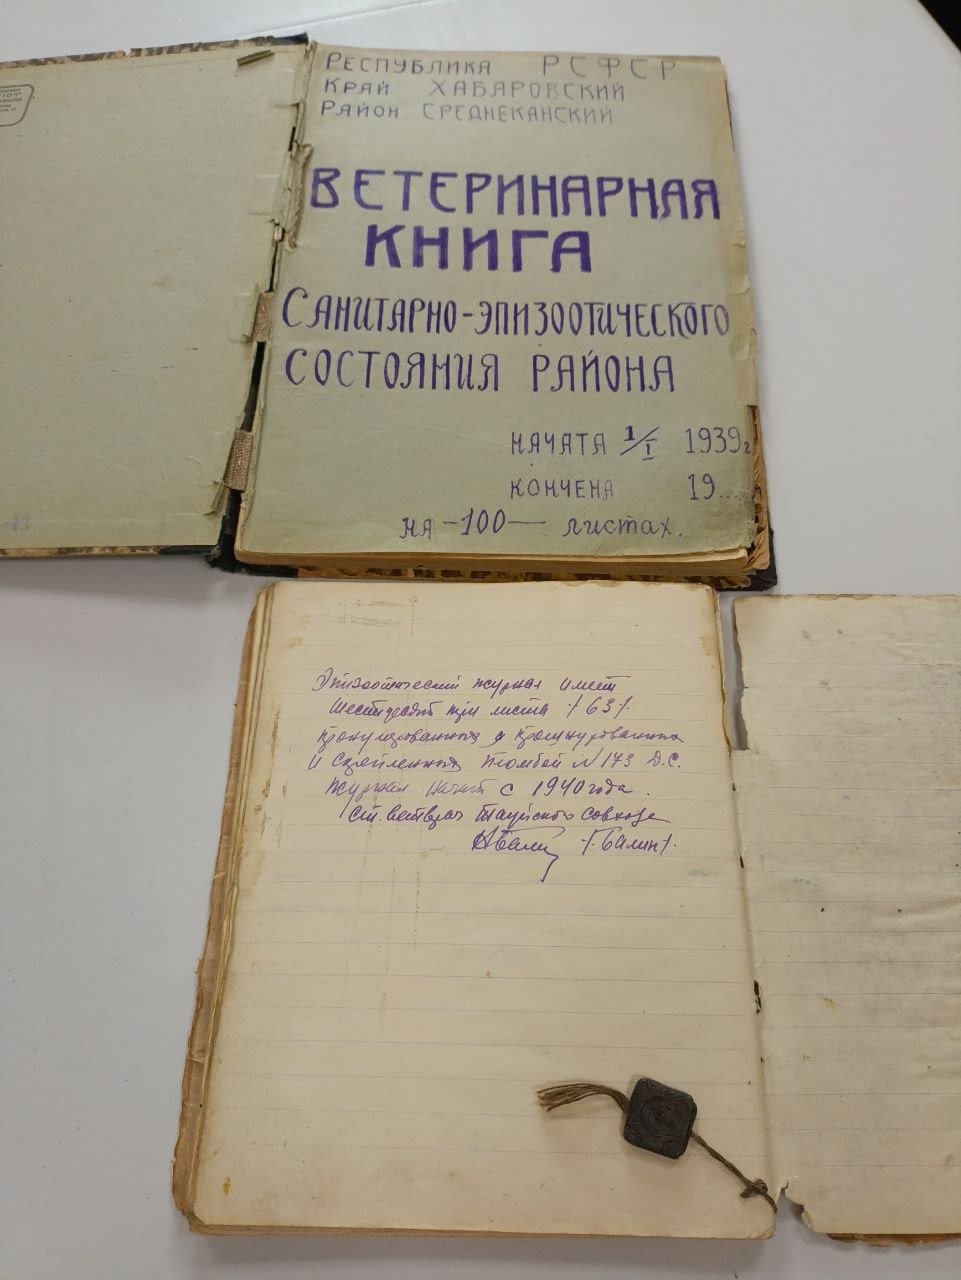 Республика РСФСР
Край Хабаровский
Район Среднеканский
ВЕТЕРИНАРНАЯ
КНИГА
САНИТАРНО-ЭПИЗООТИЧЕСКОГО
СОСТОЯНИЯ РАЙОНА
НАЧАТА 1/I 1939г
КОНЧЕНА 19...
НА -100- листах.
Эпизоотический журнал имеет
шестьдесят три листа /63/.
пронумерованных и прошнурованных
и скрепленных пломбой №173 Д.С.
Журнал начат с 1940 года.
Ст. ветврач Тауйского совхоза
/Балин/.